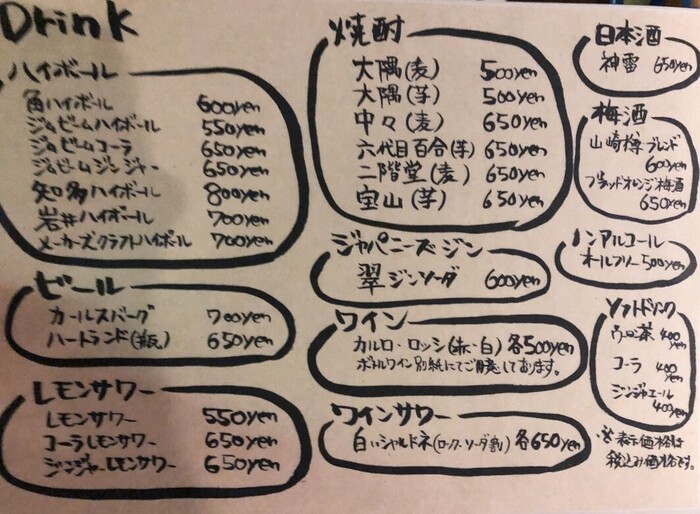 Drink
ハイボール
角ハイボール 600yen
ジムビームハイボール 550yen
ジムビームコーラ 650yen
ジムビームジンジャー 650yen
知多ハイボール 800yen
岩井ハイボール 700yen
メーカーズクラフトハイボール 700yen
ビール
カールスバーグ 700yen
ハートランド(瓶) 650yen
レモンサワー
レモンサワー 550yen
コーラレモンサワー 650yen
ジンジャーレモンサワー 650yen
焼酎
大隅(麦) 500yen
大隅(芋) 500yen
中々(麦) 650yen
六代目百合(芋) 650yen
二階堂(麦) 650yen
宝山(芋) 650yen
ジャパニーズジン
翠ジンソーダ 600yen
ワイン
カルロ・ロッシ(赤・白) 各500yen
ボトルワイン別紙にてご用意しております。
ワインサワー
白いシャルドネ(ロック・ソーダ割) 各650yen
日本酒
神雷 650yen
梅酒
山崎樽ブレンド
600yen
ブラッドオレンジ梅酒
650yen
ノンアルコール
オールフリー 500yen
ソフトドリンク
ウーロン茶 400yen
コーラ 400yen
ジンジャエール
400yen
※表示価格は
税込み価格です。